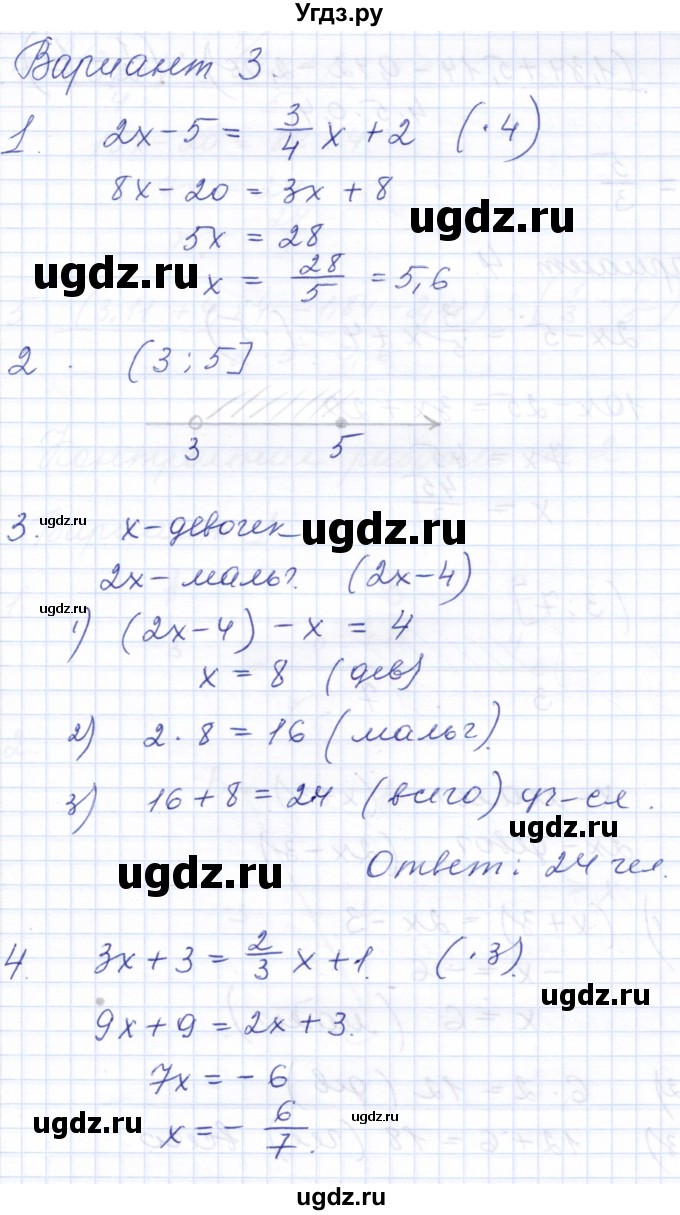 Угдз.ру
Вариант 3.
1. 2x - 5 = 3/4 x + 2 (·4)
8x - 20 = 3x + 8
ugdz.ru
5x = 28
ugdz.ru
x = 28/5 = 5,6
2. (3 ; 5]
3 5
ugdz.ru
3. x - девочек
ugdz.ru
2x - мальч. (2x - 4)
ugdz.ru
1) (2x - 4) - x = 4
x = 8 (дев)
2) 2 · 8 = 16 (мальч).
3) 16 + 8 = 24 (всего) уч-ся.
ugdz.ru
ugdz.ru
Ответ: 24 чел.
4. 3x + 3 = 2/3 x + 1. (·3).
ugdz.ru
9x + 9 = 2x + 3.
7x = - 6
ugdz.ru
x = - 6/7.
ugdz.ru
ugdz.ru